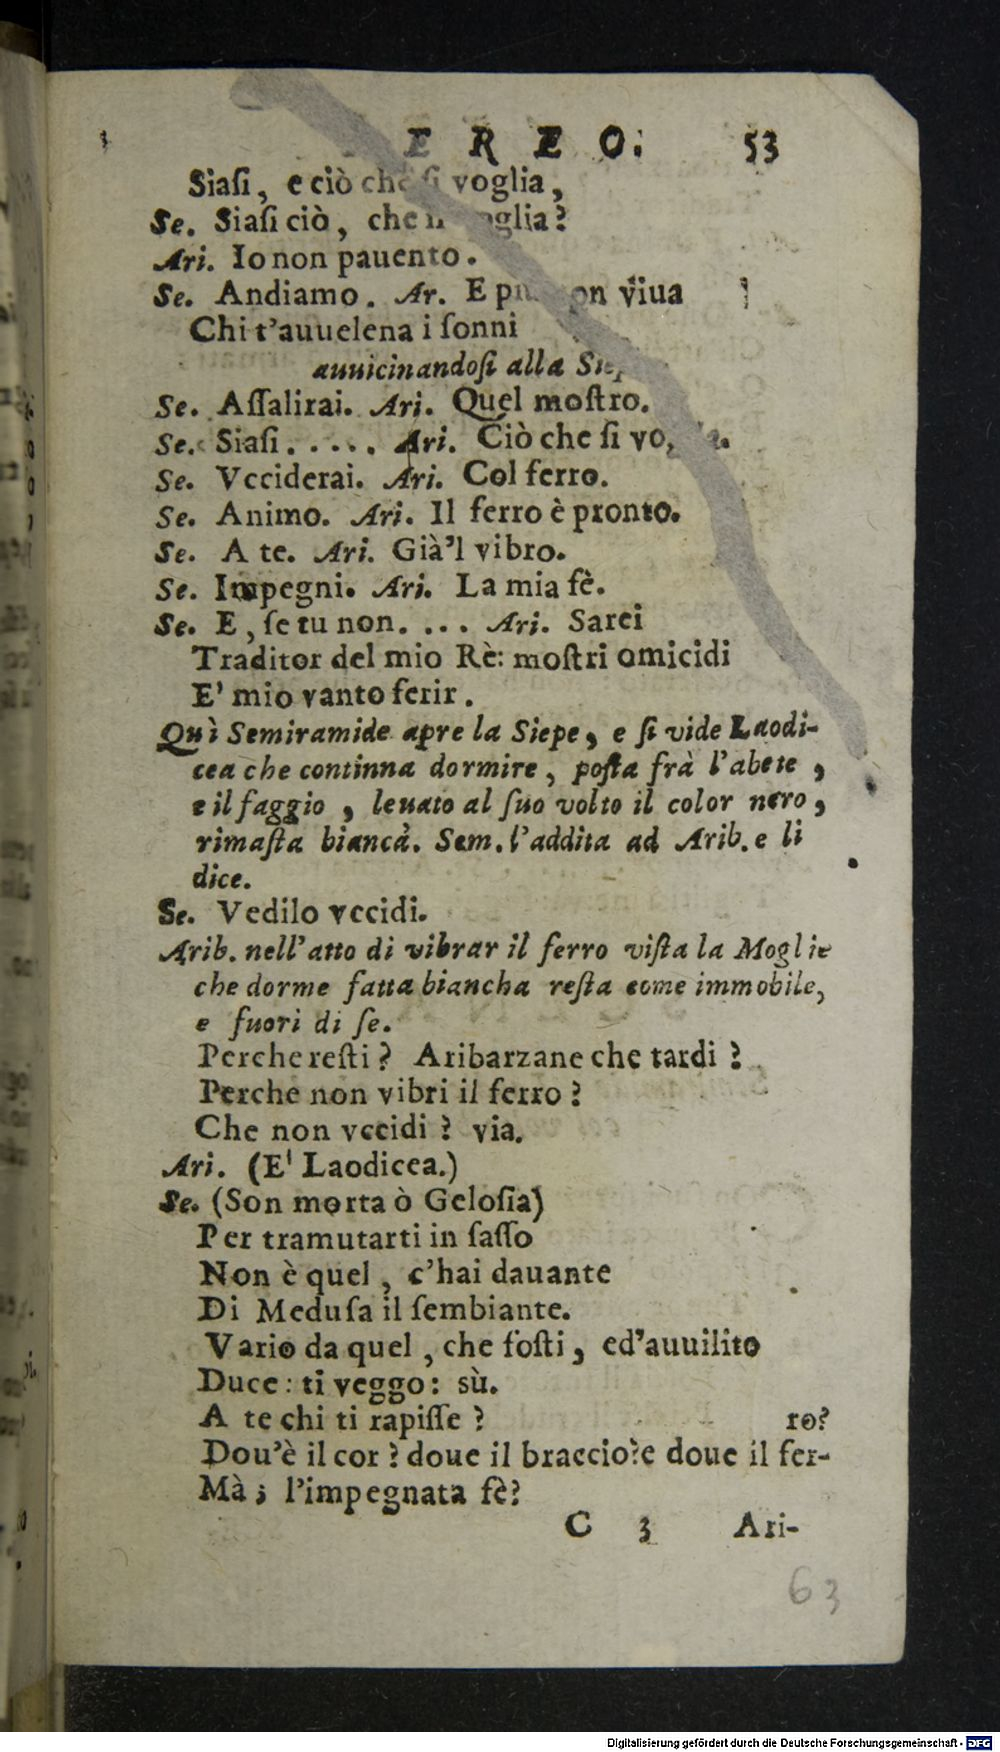 ERZO. 53
Siaſi, e ciò che ſi voglia,
Se. Siaſi ciò, che voglia?
Ari. Io non pauento.
Se. Andiamo. Ar. E più non viua
Chi t'auuelena i ſonni
auuicinandoſi alla
Se. Aſſalirai. Ari. Quel moſtro.
Se. Siaſi. . . . . Ari. Ciò che ſi
Se. Vcciderai. Ari. Col ferro.
Se. Animo. Ari. Il ferro è pronto.
Se. A te. Ari. Già'l vibro.
Se. Impegni. Ari. La mia fè.
Se. E, ſe tu non. . . . Ari. Sarei
Traditor del mio Rè: moſtri omicidi
E' mio vanto ferir.
Quì Semiramide apre la Siepe, e ſi vide Laodi-
cea che continna dormire, poſta frà l'abete,
e il faggio, leuato al ſuo volto il color nero,
rimaſta biancà. Sem. l'addita ad Arib. e li
dice.
Se. Vedilo vccidi.
Arib. nell'atto di vibrar il ferro viſta la Moglie
che dorme fatta biancha reſta come immobile,
e fuori di ſe.
Perche reſti? Aribarzane che tardi?
Perche non vibri il ferro?
Che non vccidi? via.
Ari. (E' Laodicea.)
Se. (Son morta ò Geloſia)
Per tramutarti in ſaſſo
Non è quel, c'hai dauante
Di Meduſa il ſembiante.
Vario da quel, che foſti, ed'auuilito
Duce: ti veggo: sù.
A te chi ti rapiſſe? ro?
Dou'è il cor? doue il braccio?e doue il fer-
Mà; l'impegnata fè?
C 3 Ari-
63
Digitalisierung gefördert durch die Deutsche Forschungsgemeinschaft - DFG